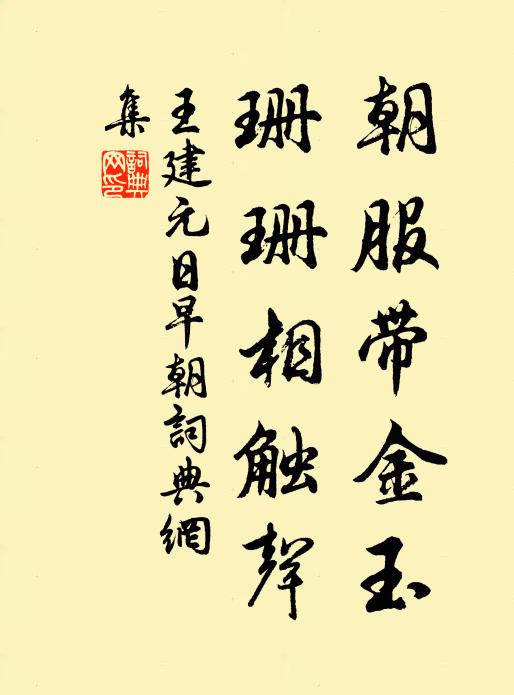 朝服带金玉
珊珊相触聲
王建元日早朝詞典網
集
詞典
网印